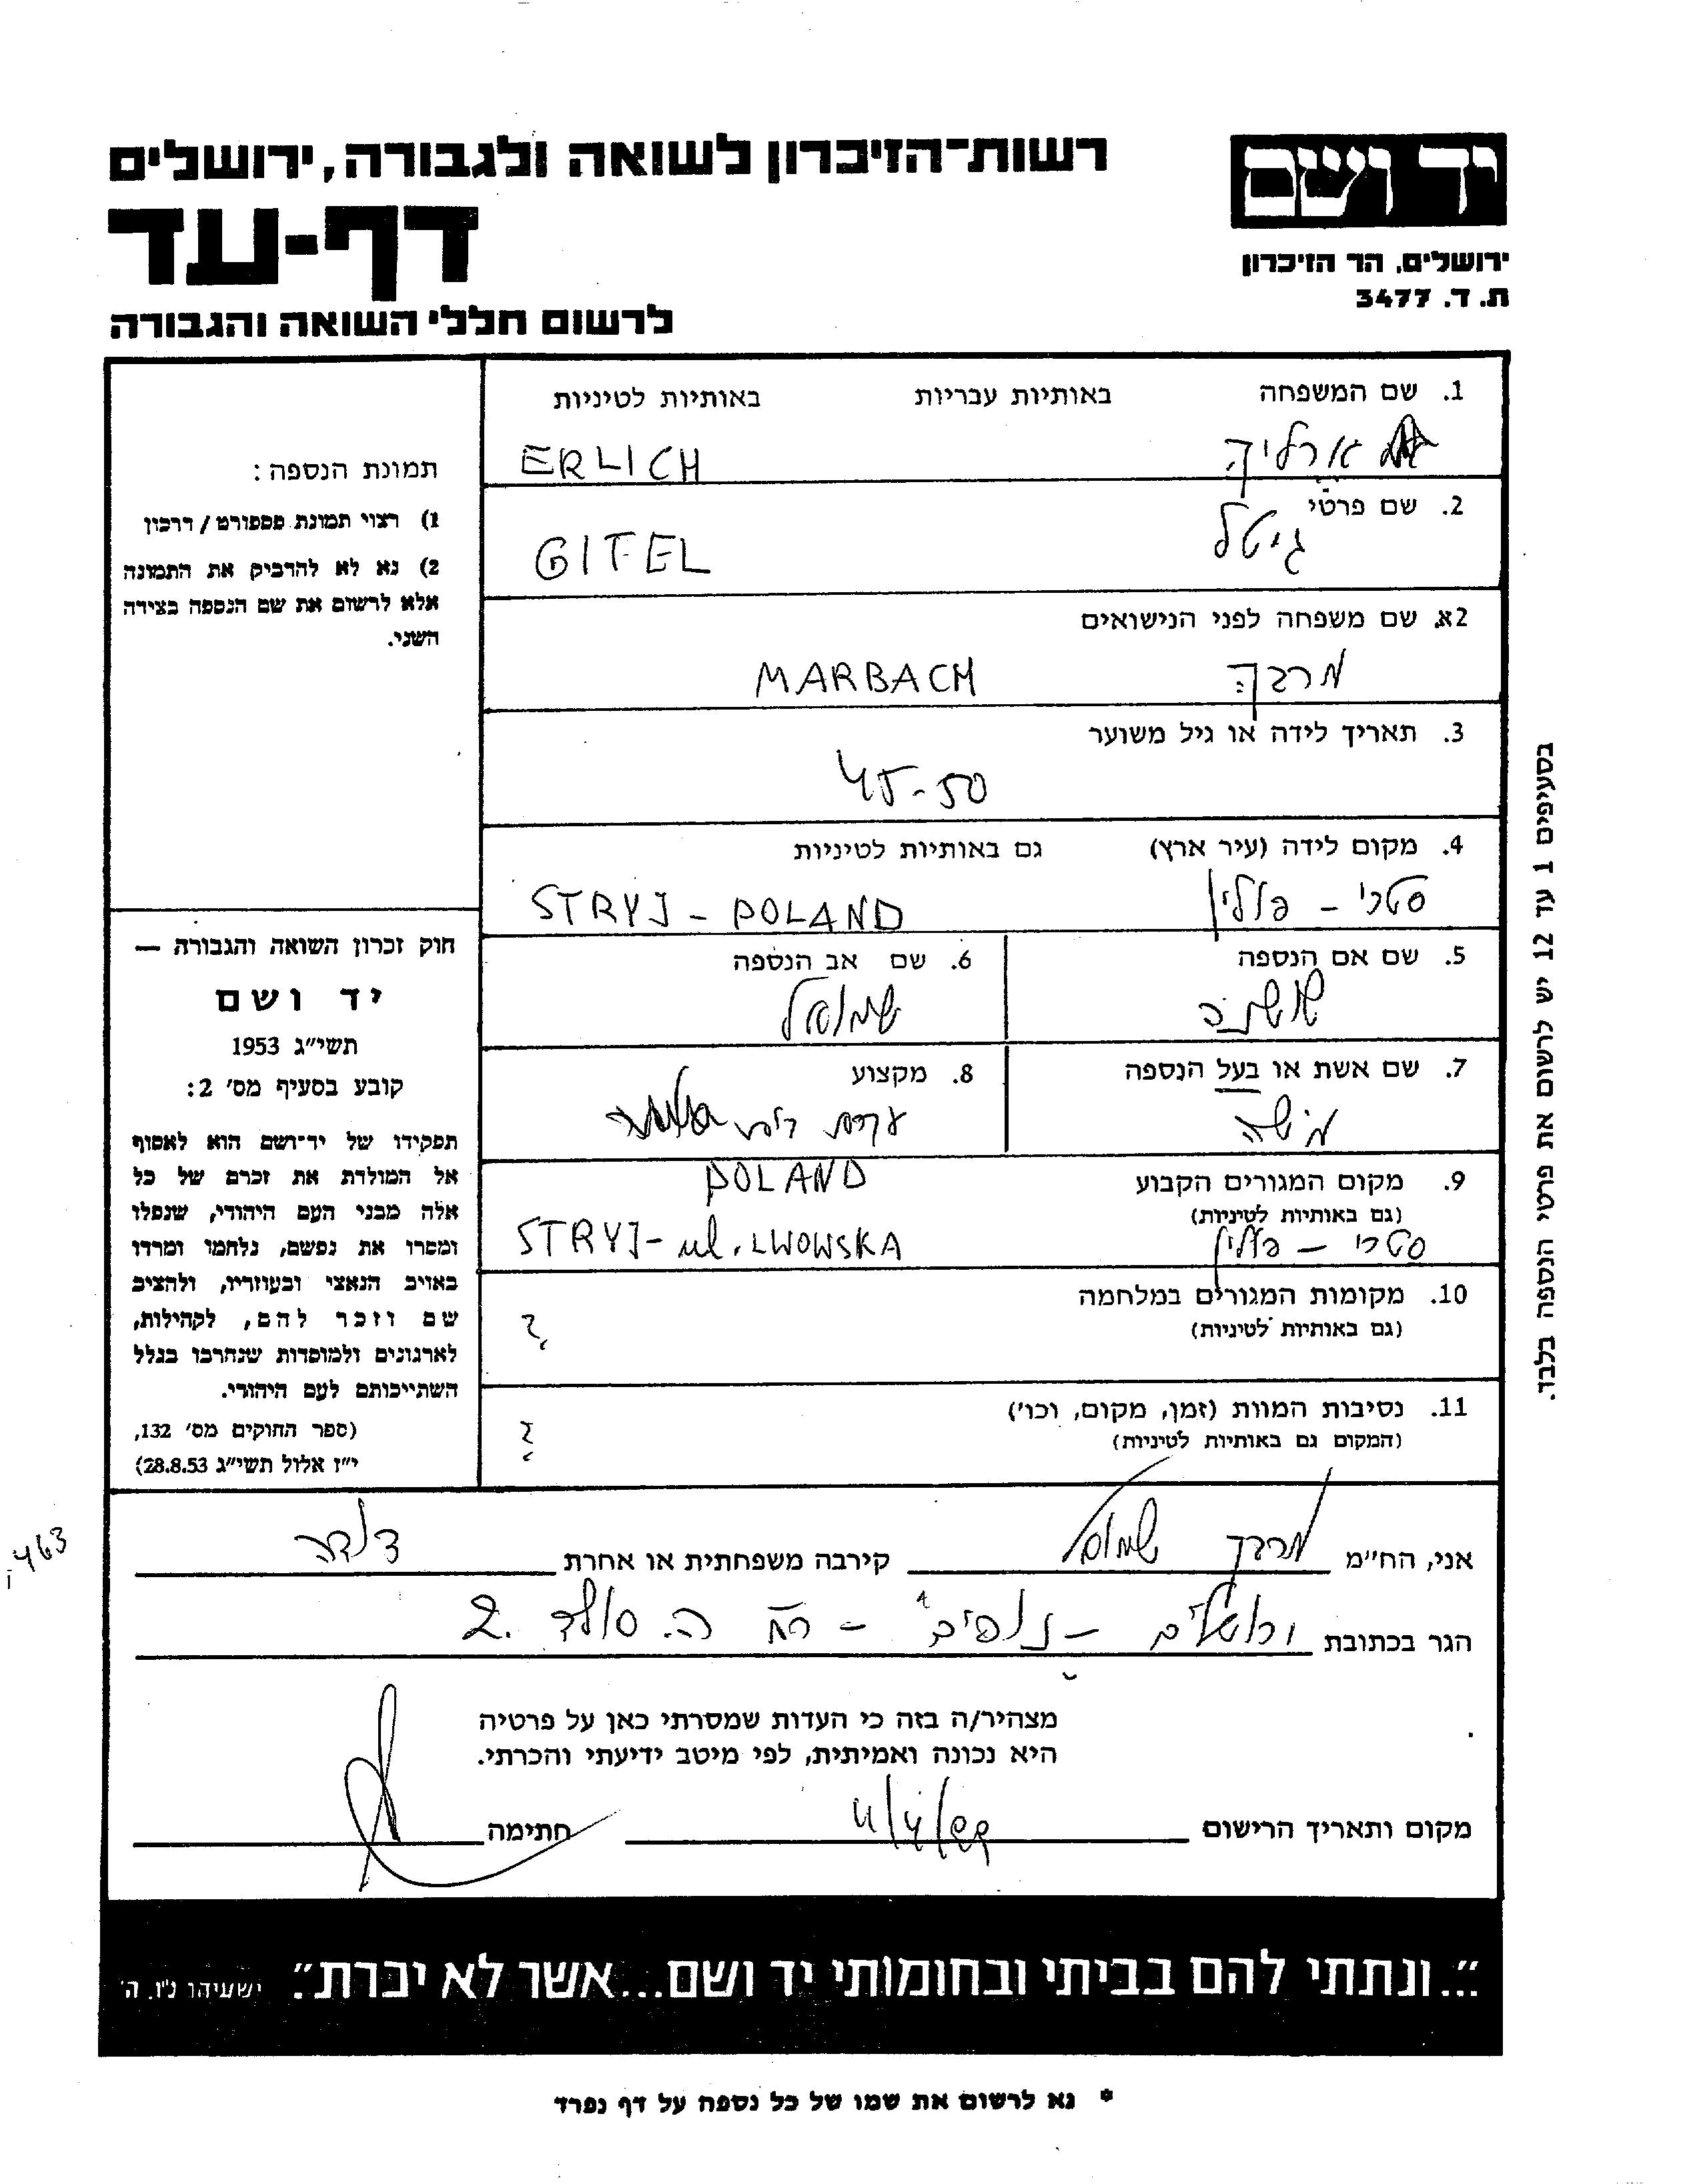 רשות־הזיכרון לשואה ולגבורה, ירושלים
יד ושם
דף-עד
ירושלים, הר הזיכרון
ת. ד. 3477
לרשום חללי השואה והגבורה
1. שם המשפחה באותיות עבריות באותיות לטיניות
ארליך ERLICH
2. שם פרטי
גיטל GITEL
2א. שם משפחה לפני הנישואים
מרבך MARBACH
3. תאריך לידה או גיל משוער
45-50
4. מקום לידה (עיר ארץ) גם באותיות לטיניות
סטרי - פולין STRYJ - POLAND
5. שם אם הנספה
שושנה
6. שם אב הנספה
שמואל
7. שם אשת או בעל הנספה
משה
8. מקצוע
עקרת בית
9. מקום המגורים הקבוע
(גם באותיות לטיניות)
POLAND
סטרי - פולין STRYJ - ul. LWOWSKA
10. מקומות המגורים במלחמה
(גם באותיות לטיניות)
?
11. נסיבות המוות (זמן, מקום, וכו')
(המקום גם באותיות לטיניות)
?
תמונת הנספה:
1) רצוי תמונת פספורט / דרכון
2) נא לא להדביק את התמונה
אלא לרשום את שם הנספה בצידה
השני.
חוק זכרון השואה והגבורה —
יד ושם
תשי״ג 1953
קובע בסעיף מס' 2:
תפקידו של יד־ושם הוא לאסוף
אל המולדת את זכרם של כל
אלה מבני העם היהודי, שנפלו
ומסרו את נפשם, נלחמו ומרדו
באויב הנאצי ובעוזריו, ולהציב
שם וזכר להם, לקהילות,
לארגונים ולמוסדות שנחרבו בגלל
השתייכותם לעם היהודי.
(ספר החוקים מס' 132,
י״ז אלול תשי״ג 28.8.53)
בסעיפים 1 עד 12 יש לרשום את פרטי הנספה בלבד.
אני, הח״מ מרבך שמואל קירבה משפחתית או אחרת דודה
463
הגר בכתובת ירושלים - - רח ה. סולד 2.
מצהיר/ה בזה כי העדות שמסרתי כאן על פרטיה
היא נכונה ואמיתית, לפי מיטב ידיעתי והכרתי.
מקום ותאריך הרישום חתימה
״...ונתתי להם בביתי ובחומותי יד ושם...אשר לא יכרת״. ישעיהו נ״ו, ה'
* נא לרשום את שמו של כל נספה על דף נפרד